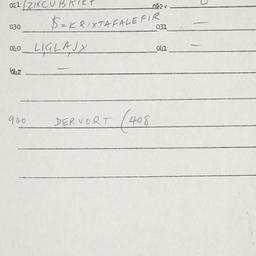 021 IZIKCUBRIKT 022. 0
030 $=KRIXTAFALEFIR 031 —
040 LIGLAJX 041 —
—
900 DERVORT (408